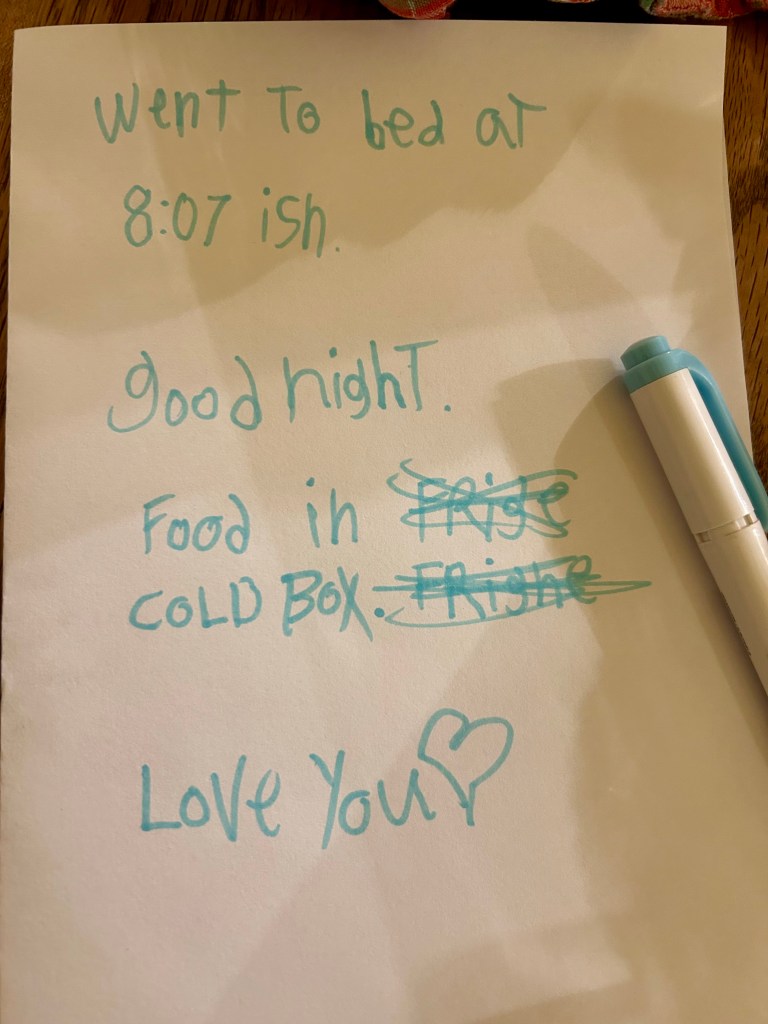 Went To bed at
8:07 ish.
good night.
Food in FRige
COLD BOX. FRighe
Love You